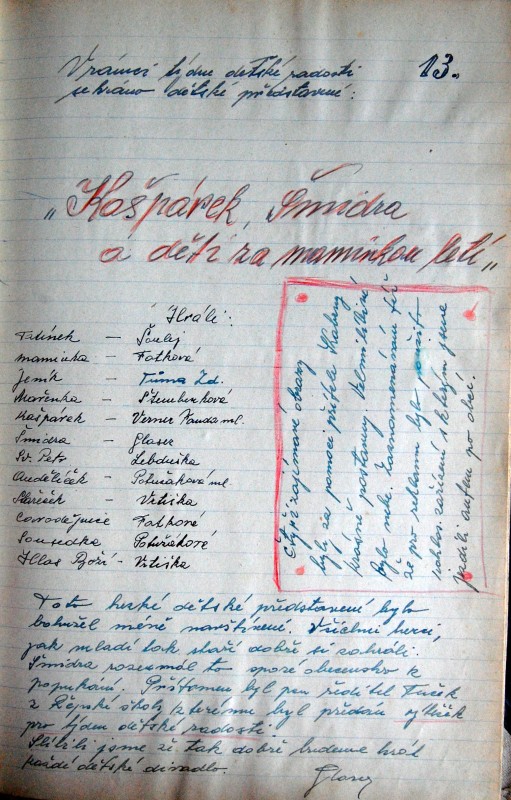 V rámci týdne dětské radosti
sehráno dětské představení:
13.
"Kašpárek, Šmidra
a děti za maminkou letí"
Hráli:
Tatínek – Šoulej
maminka – Fořková
Jeník – Tůma Zd.
Mařenka – Štemberková
Kašpárek – Verner Vanda ml.
Šmidra – Glaser
Sv. Petr Lebduška
Andělíček – Potužáková ml.
Skřeček – Vetiška
Čarodějnice Fořtková
Sousedka Potužáková
Hlas Boží – Vetiška
Čtyři zajímavé obrazy
byly za pomoci přítele
krásně postaveny. Velmi
Bylo nebe
že pro reklamu byl použit
rozhlas. zařízení s kterým jsme
jezdili autem po obci.
Toto hezké dětské představení bylo
bohužel méně navštívené. Všichni herci,
jak mladí tak staří dobře si zahráli.
Šmidra rozesmál to sporé obecenstvo k
popukání. Přítomen byl pan ředitel Tuček
z školy kterému byl předán výtěžek
pro týden dětské radosti.
Slíbili jsme že tak dobře budeme hrát
každé dětské divadlo.
Glaser